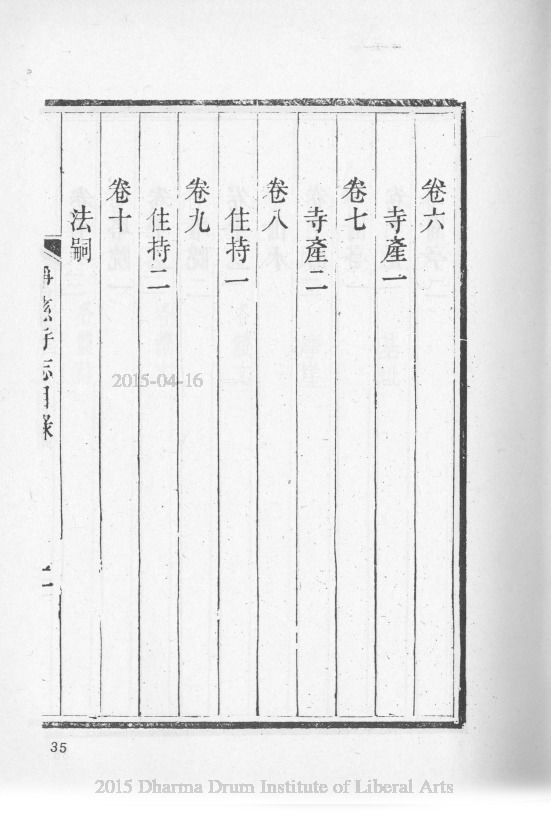 卷六
寺產一
卷七
寺產二
卷八
住持一
卷九
住持二
卷十
法嗣
寺志目錄
2015-04-16
35
2015 Dharma Drum Institute of Liberal Arts